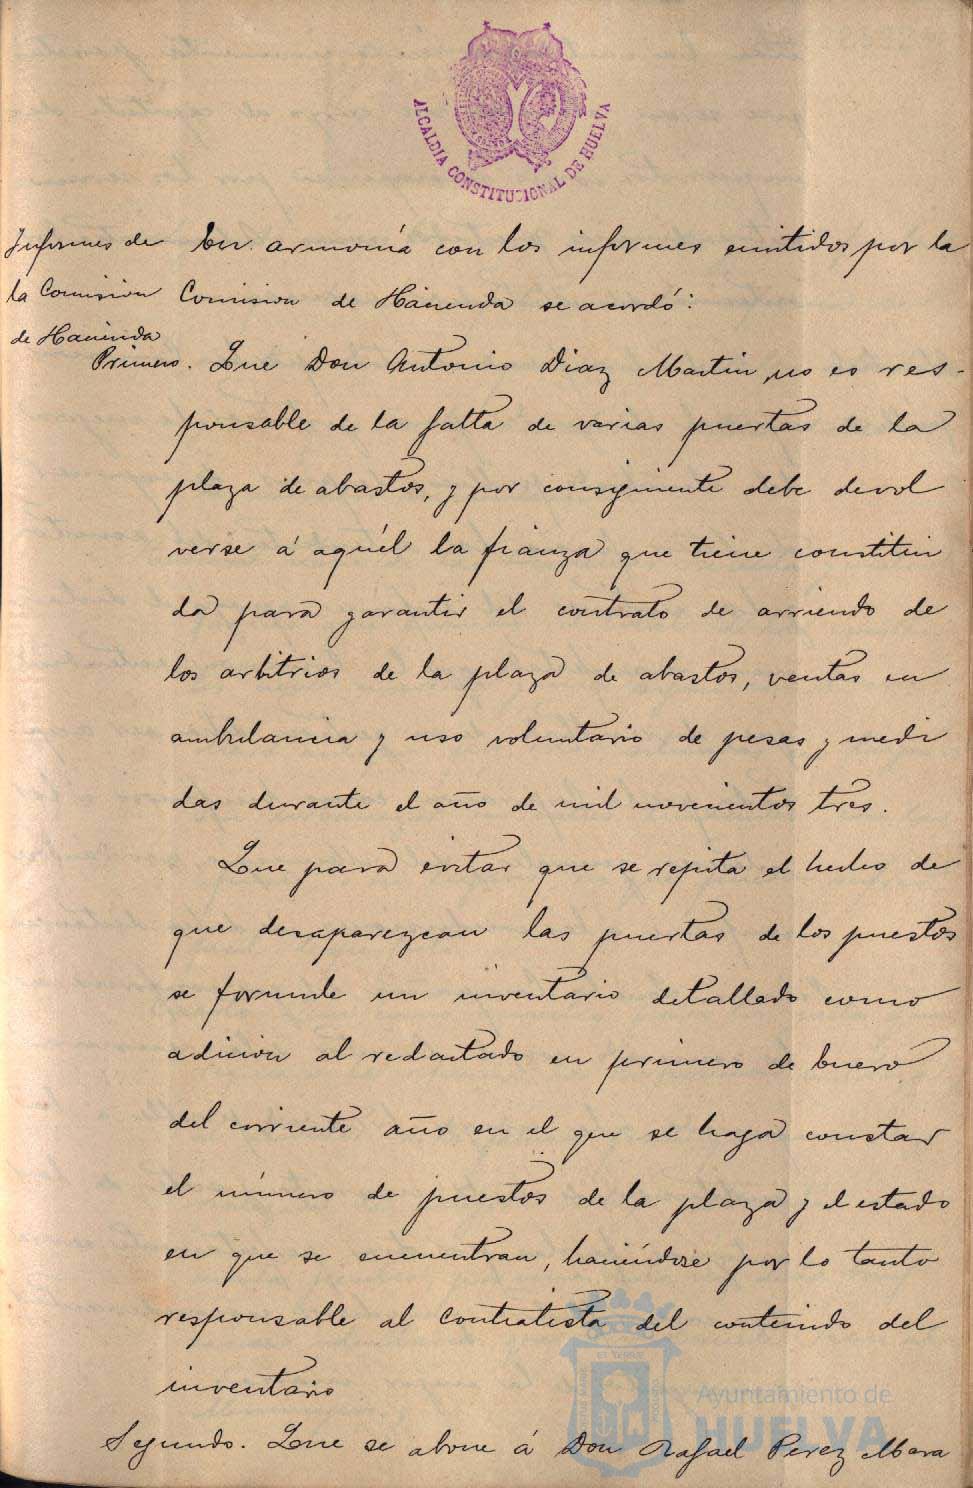 ALCALDIA CONSTITUCIONAL DE HUELVA
Informes de
la Comision
de Hacienda
En armonía con los informes emitidos por la
Comision de Hacienda se acordó:
Primero. Que Don Antonio Diaz Martin, no es res-
ponsable de la falta de varias puertas de la
plaza de abastos, y por consiguiente debe devol
verse á aquél la fianza que tiene constitui
da para garantir el contrato de arriendo de
los arbitrios de la plaza de abastos, ventas en
ambulancia y uso voluntario de pesas y medi
das durante el año de mil novecientos tres.
Que para evitar que se repita el hecho de
que desaparezcan las puertas de los puestos
se formule un inventario detallado como
adicion al redactado en primero de Enero
del corriente año en el que se haga constar
el número de puestos de la plaza y el estado
en que se encuentran, haciéndose por lo tanto
responsable al contratista del contenido del
inventario
Segundo. Que se abone á Don Rafael Perez Mora
Ayuntamiento de
HUELVA